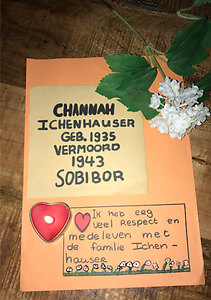 CHANNAH
ICHENHAUSER
GEB. 1935
VERMOORD
1943
SOBIBOR
Ik heb erg
veel Respect en
medeleven met
de familie Ichen-
hauser